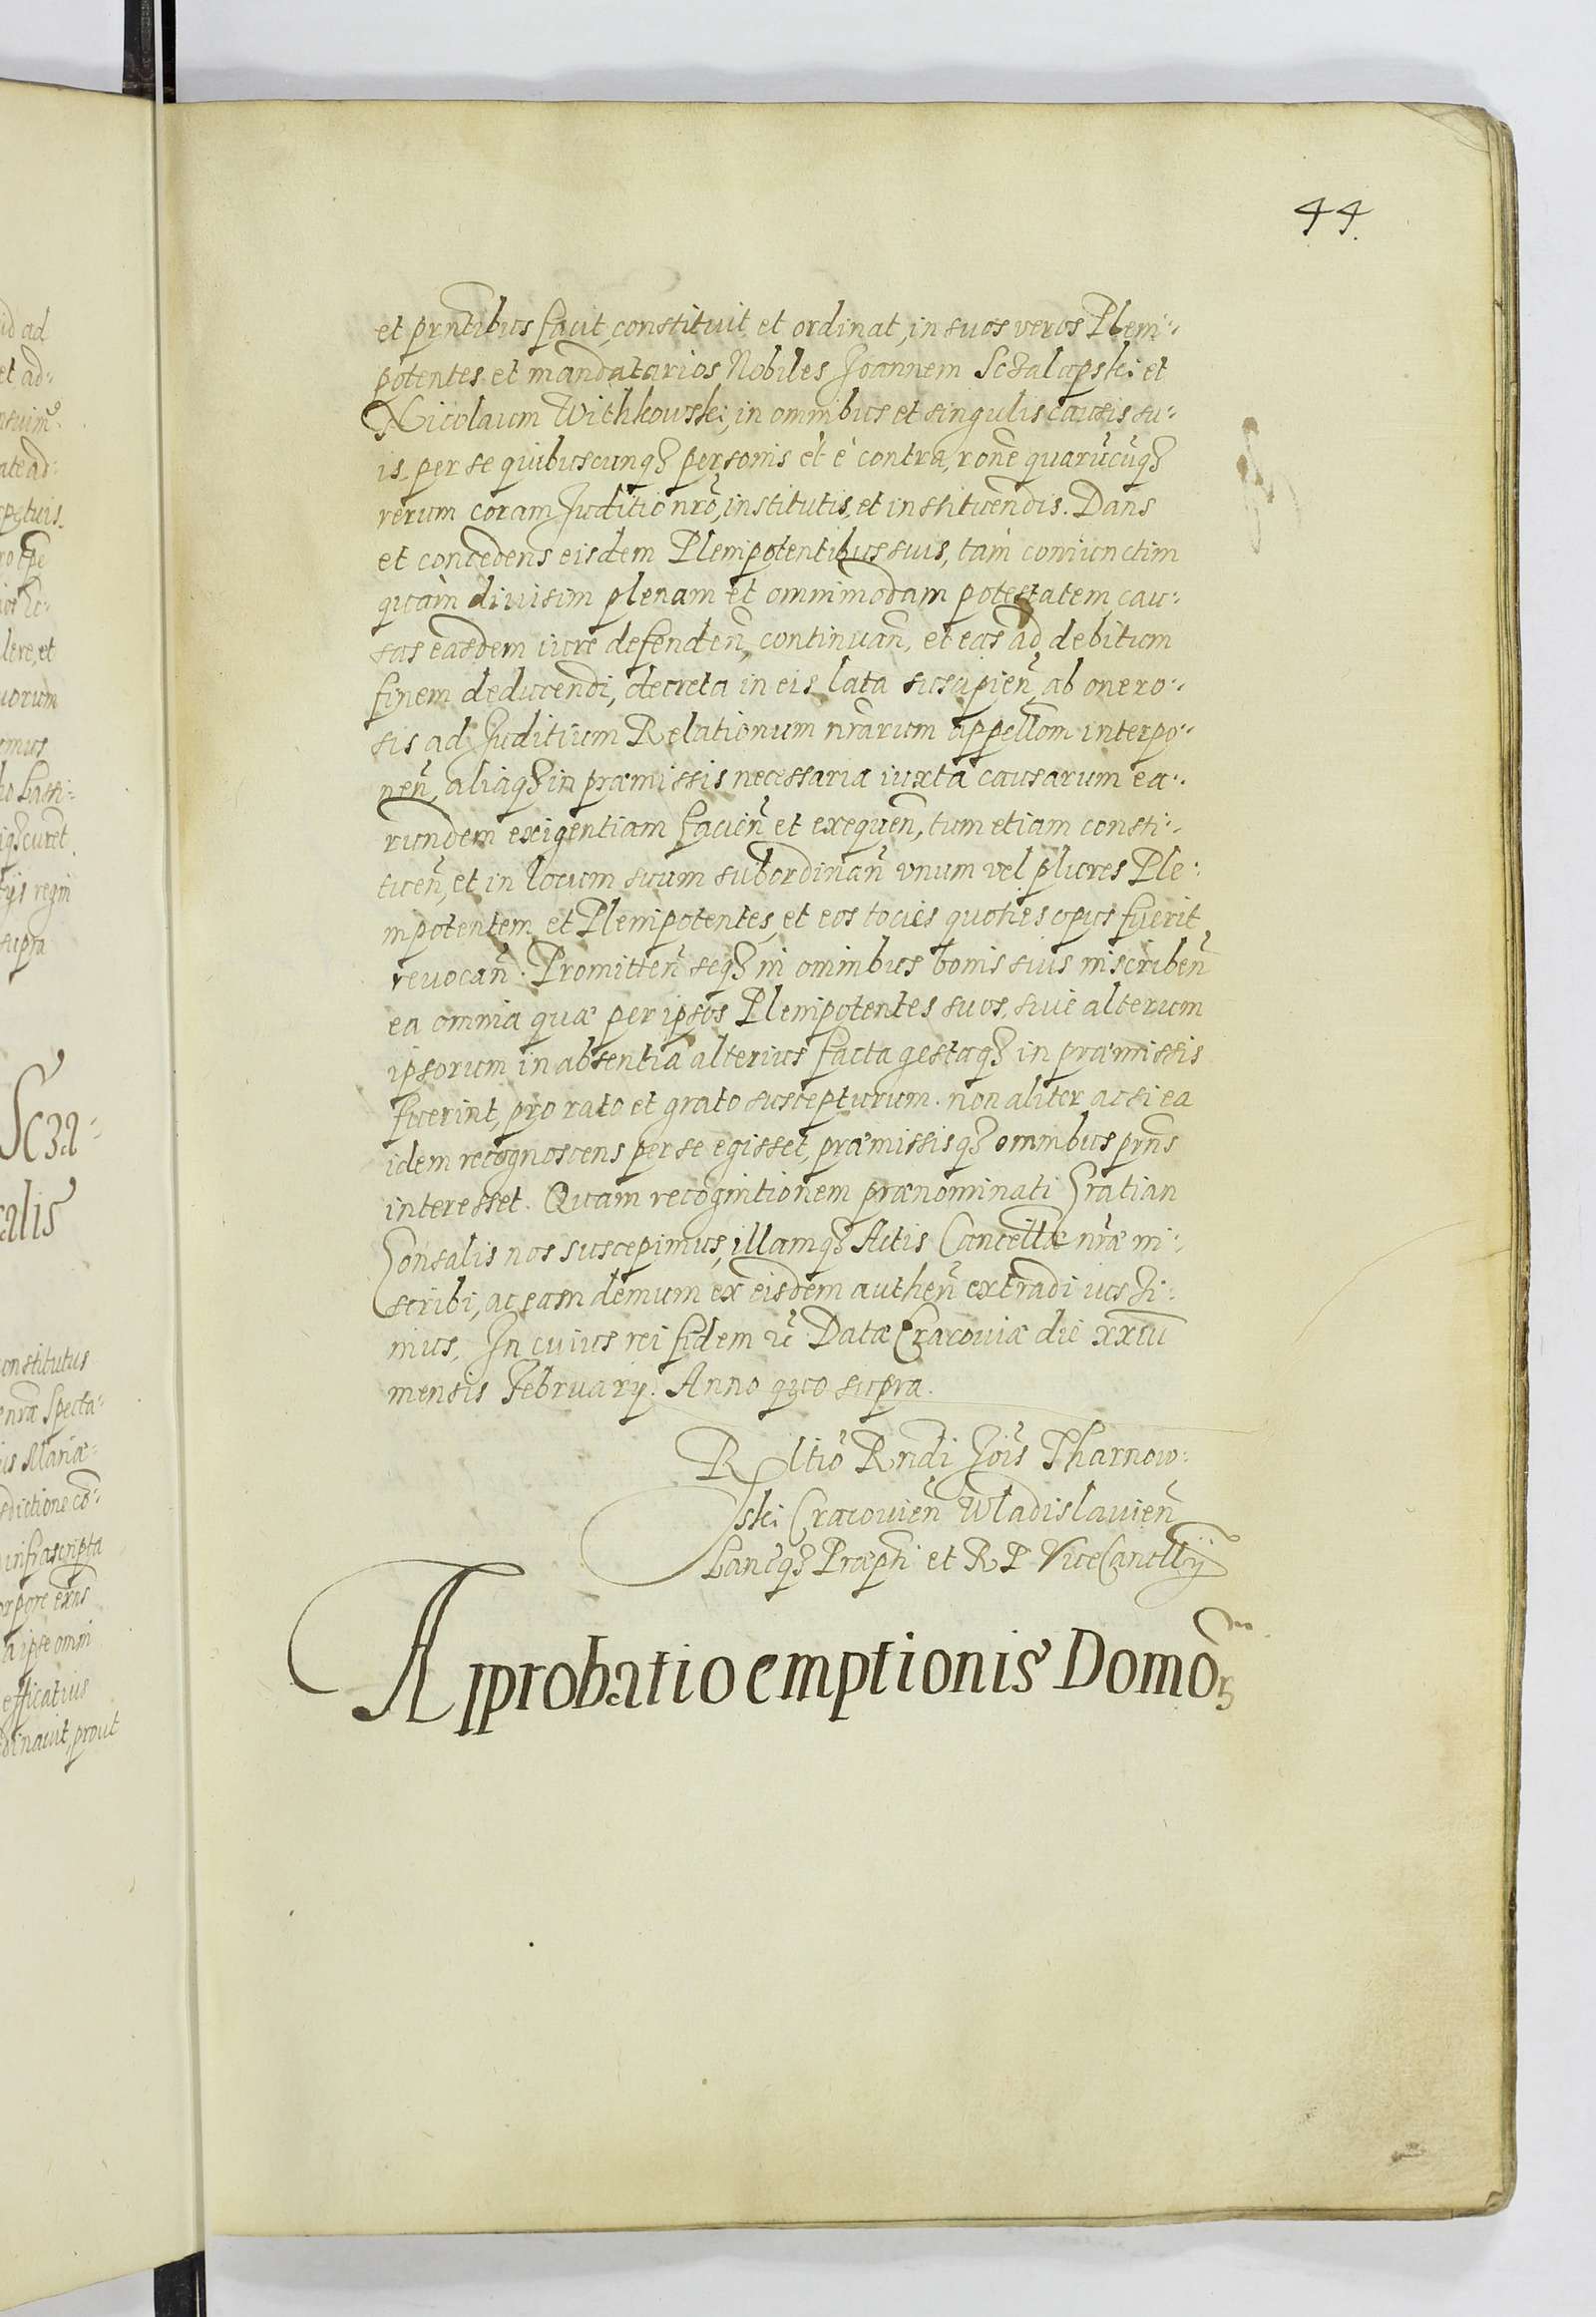 44.
et prntibus facit, constituit et ordinat, in suos veros Pleni-
potentes et mandatarios Nobiles Joannem Sczalapski et
Nicolaum Withkowski, in omnibus et singulis causis su-
is, per se quibuscunq3 personis et è contra, rone quarucuq3
rerum coram Juditio nro, institutis, et instituendis. Dans
et concedens eisdem Plenipotentibus suis, tam coniunctim
quàm diuisim plenam et omnimodam potestatem, cau-
sas easdem iure defenden, continuan, et eas ad debitum
finem deducendi, decreta in eis lata suscipien, ab onero-
sis ad Juditium Relationum nrarum appellom interpo-
nen, aliaq3 in præmissis necessaria iuxta causarum ea-
rundem exigentiam facien et exequen, tum etiam consti-
tuen, et in locum suum subordinan vnum vel plures Ple-
nipotentem et Plenipotentes, et eos tocies quoties opus fuerit
reuocan. Promitten seq3 in omnibus bonis suis inscriben
ea omnia quæ per ipsos Plenipotentes suos, siue alterum
ipsorum in absentia alterius facta gestaq3 in præmissis
fuerint, pro rato et grato suscepturum. non aliter ac si ea
idem recognoscens per se egisset, præmissisq3 omnibus prns
interesset. Quam recognitionem prænominati Gratian
Gonsalis nos suscepimus, illamq3 Actis Cancellæ nræ in-
scribi, ac eam demum ex eisdem authen extradi iussi-
mus. In cuius rei fidem &c Datæ Cracouiæ die xxiu
mensis February. Anno quo supra.
Rltio Rndi Jois Tharnow-
ski Cracouien Wladislauien
Lancq3 Præpti et R P ViceCancllij
Approbatio emptionis Domo
id ad
et ad-
ate ad-
petuis
lere, et
uorum
supra
Scza-
calis
constitutus
nræ Specta-
is Mariæ
sdictione co-
infrascripta
orpore exns
a ipse omni
efficatius
dinauit, prout